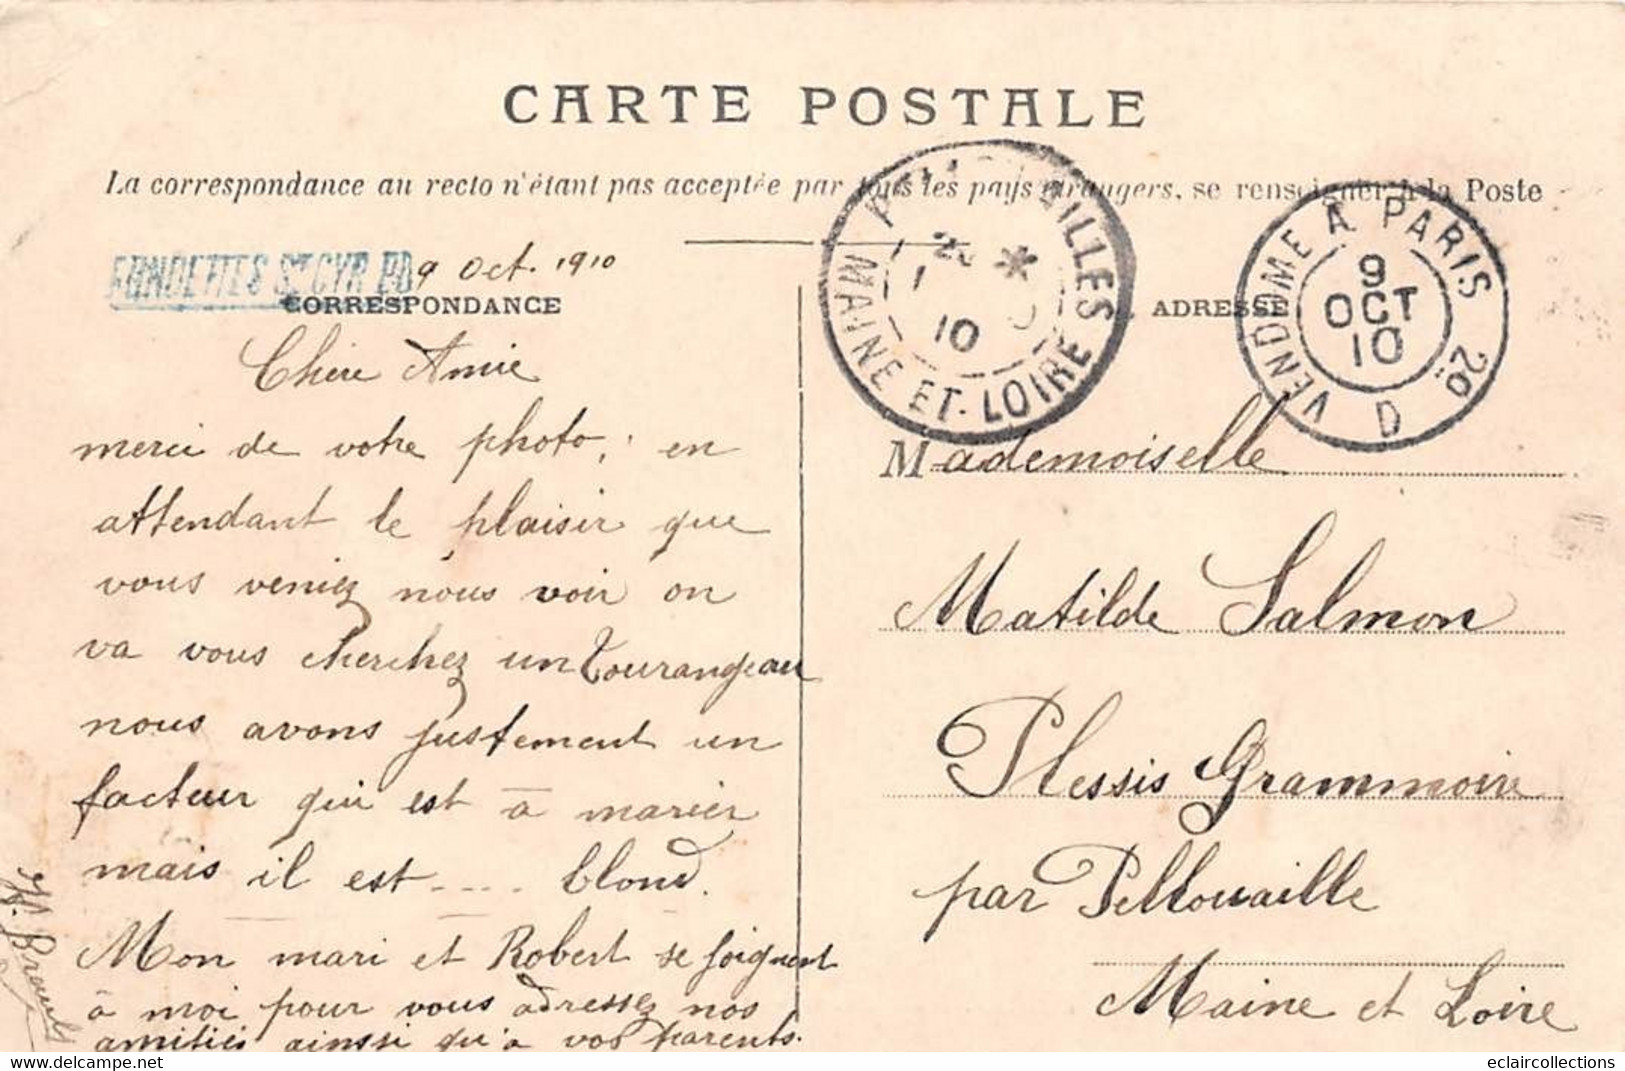 CARTE POSTALE
La correspondance au recto n'étant pas acceptée par tous les pays étrangers, se renseigner à la Poste
FONDETTES ST CYR
9 Oct. 1910
CORRESPONDANCE
Chère Amie
merci de votre photo; en
attendant le plaisir que
vous veniez nous voir on
va vous cherchez un Tourangeau
nous avons justement un
facteur qui est à marier
mais il est .... blond.
Mon mari et Robert se joignent
à moi pour vous adressez nos
amitiés ainsi qu'à vos parents.
MAINE ET-LOIRE
10
ADRESSE
VENDOME A PARIS 2º
9
OCT
10
D
Mademoiselle
Matilde Salmon
Plessis Grammoire
par Pellouaille
Maine et Loire
eclaircollections